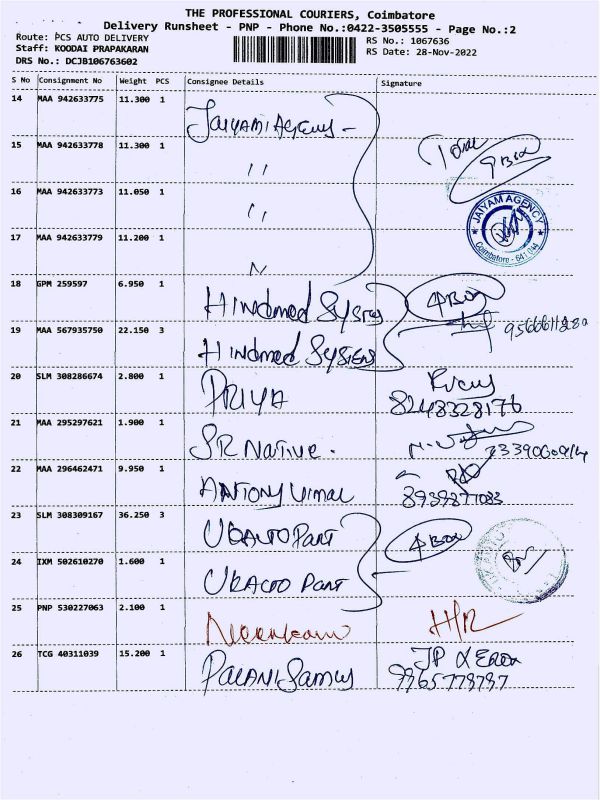 THE PROFESSIONAL COURIERS, Coimbatore
Delivery Runsheet - PNP - Phone No.:0422-3505555 - Page No.:2
Route: PCS AUTO DELIVERY
RS No.: 1067636
Staff: KOODAI PRAPAKARAN
RS Date: 28-Nov-2022
DRS No.: DCJB106763602
S No Consignment No Weight PCS Consignee Details Signature
14 MAA 942633775 11.300 1 JAIYAMI Agency -
15 MAA 942633778 11.300 1 ,, Total 9 Box
16 MAA 942633773 11.050 1 ,,
JAIYAM AGENCY
Coimbatore - 641 044
17 MAA 942633779 11.200 1
18 GPM 259597 6.950 1 Hindmed Systems 4 Box
19 MAA 567935750 22.150 3 Hindmed Systems
20 SLM 308286674 2.800 1 PRIYA 8248328176
21 MAA 295297621 1.900 1 SR Native.
22 MAA 296462471 9.950 1 Antony Vimal 8939877083
23 SLM 308309167 36.250 3 UBAUTO Part 4 Box
24 IXM 502610270 1.600 1 Part
25 PNP 530227063 2.100 1
26 TCG 40311039 15.200 1 Palani Samy JP 9965778797